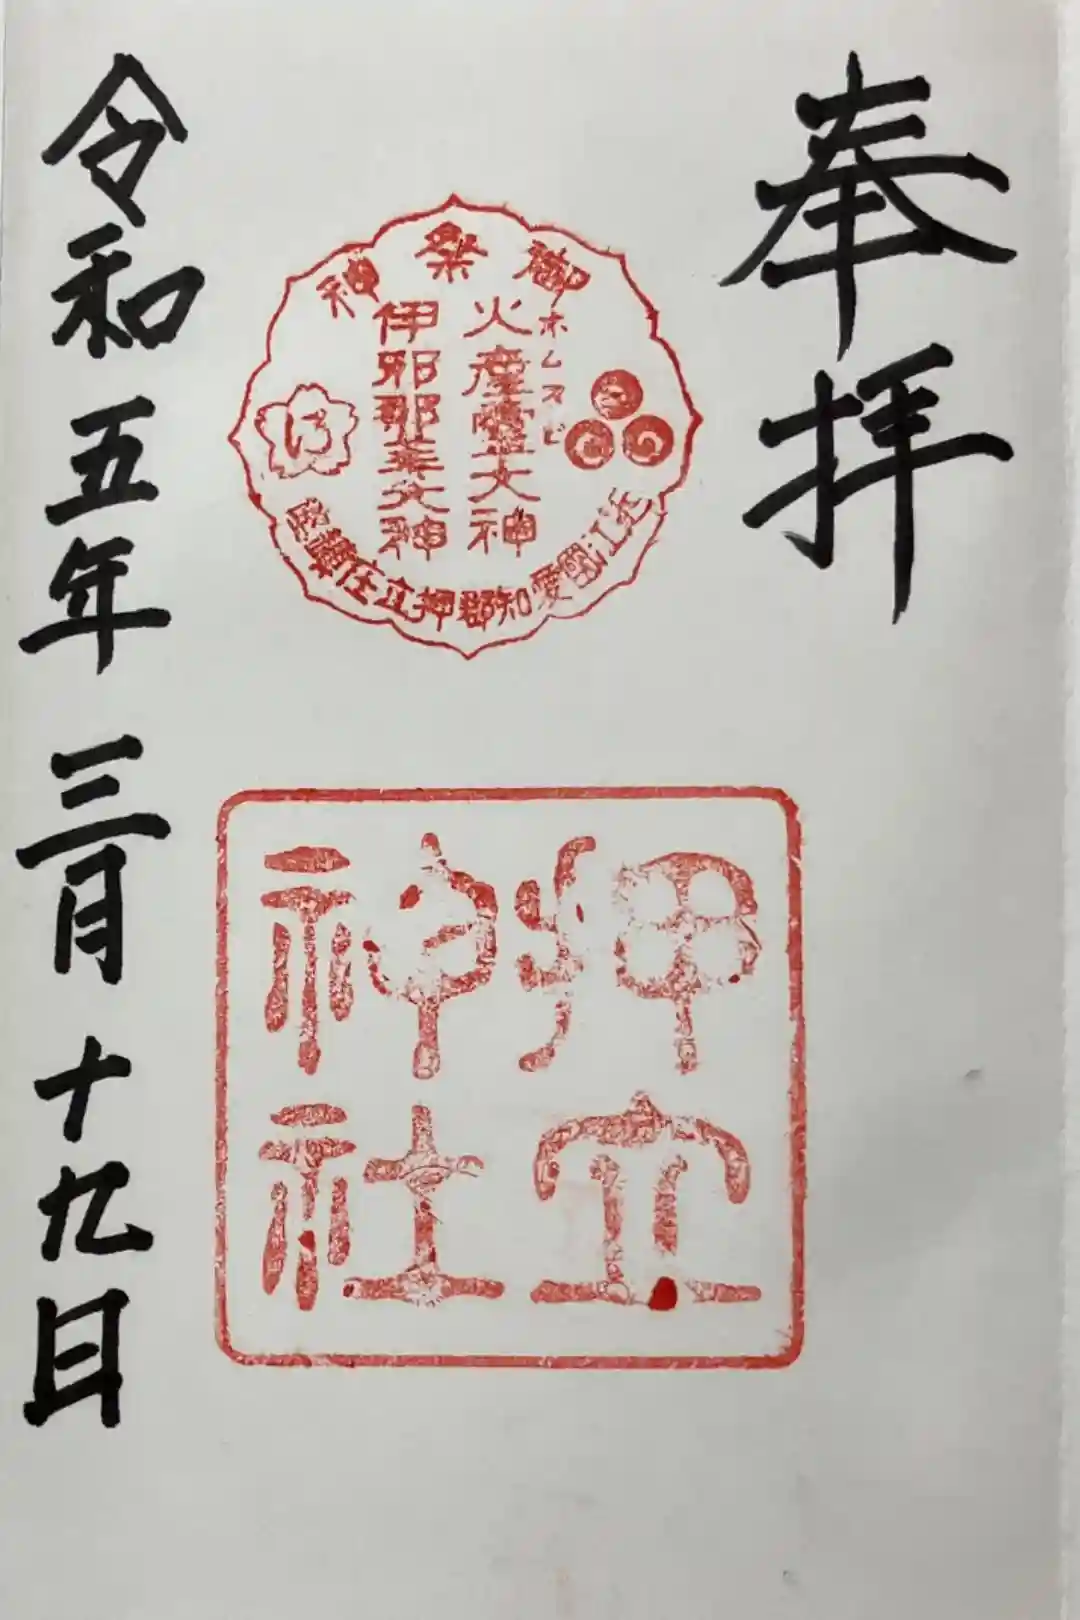 奉拝
御祭神
火産霊大神
ホムスビ
伊邪那美大神
近江國愛知郡押立庄鎮座
押立
神社
令和五年三月十九日